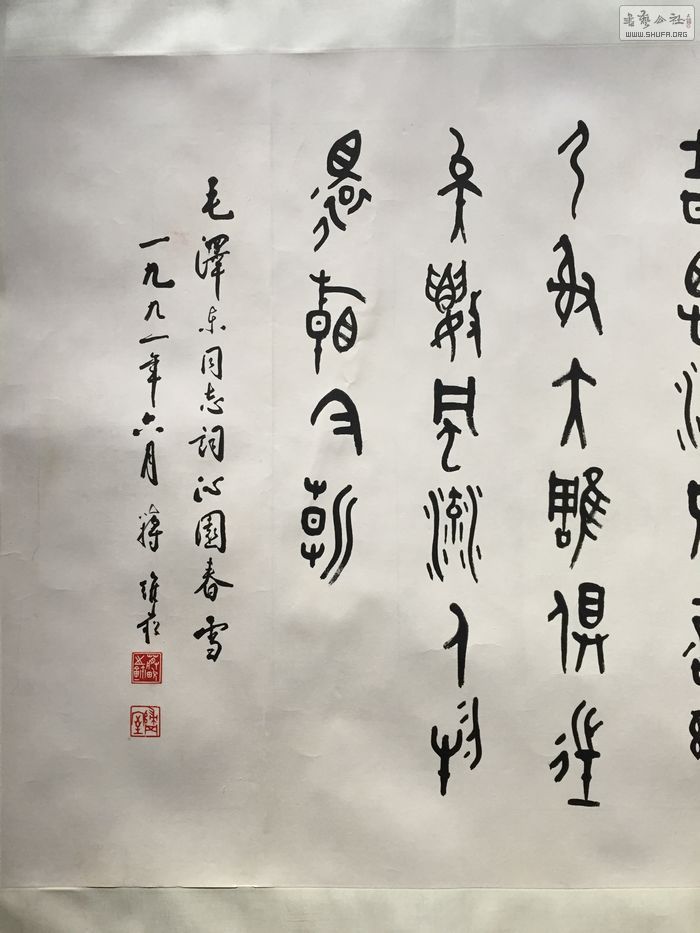 弓射大雕俱往
矣數風流人物
還看今朝
毛澤東同志詞沁園春雪
一九九一年六月 蔣維崧
書藝公社
WWW.SHUFA.ORG